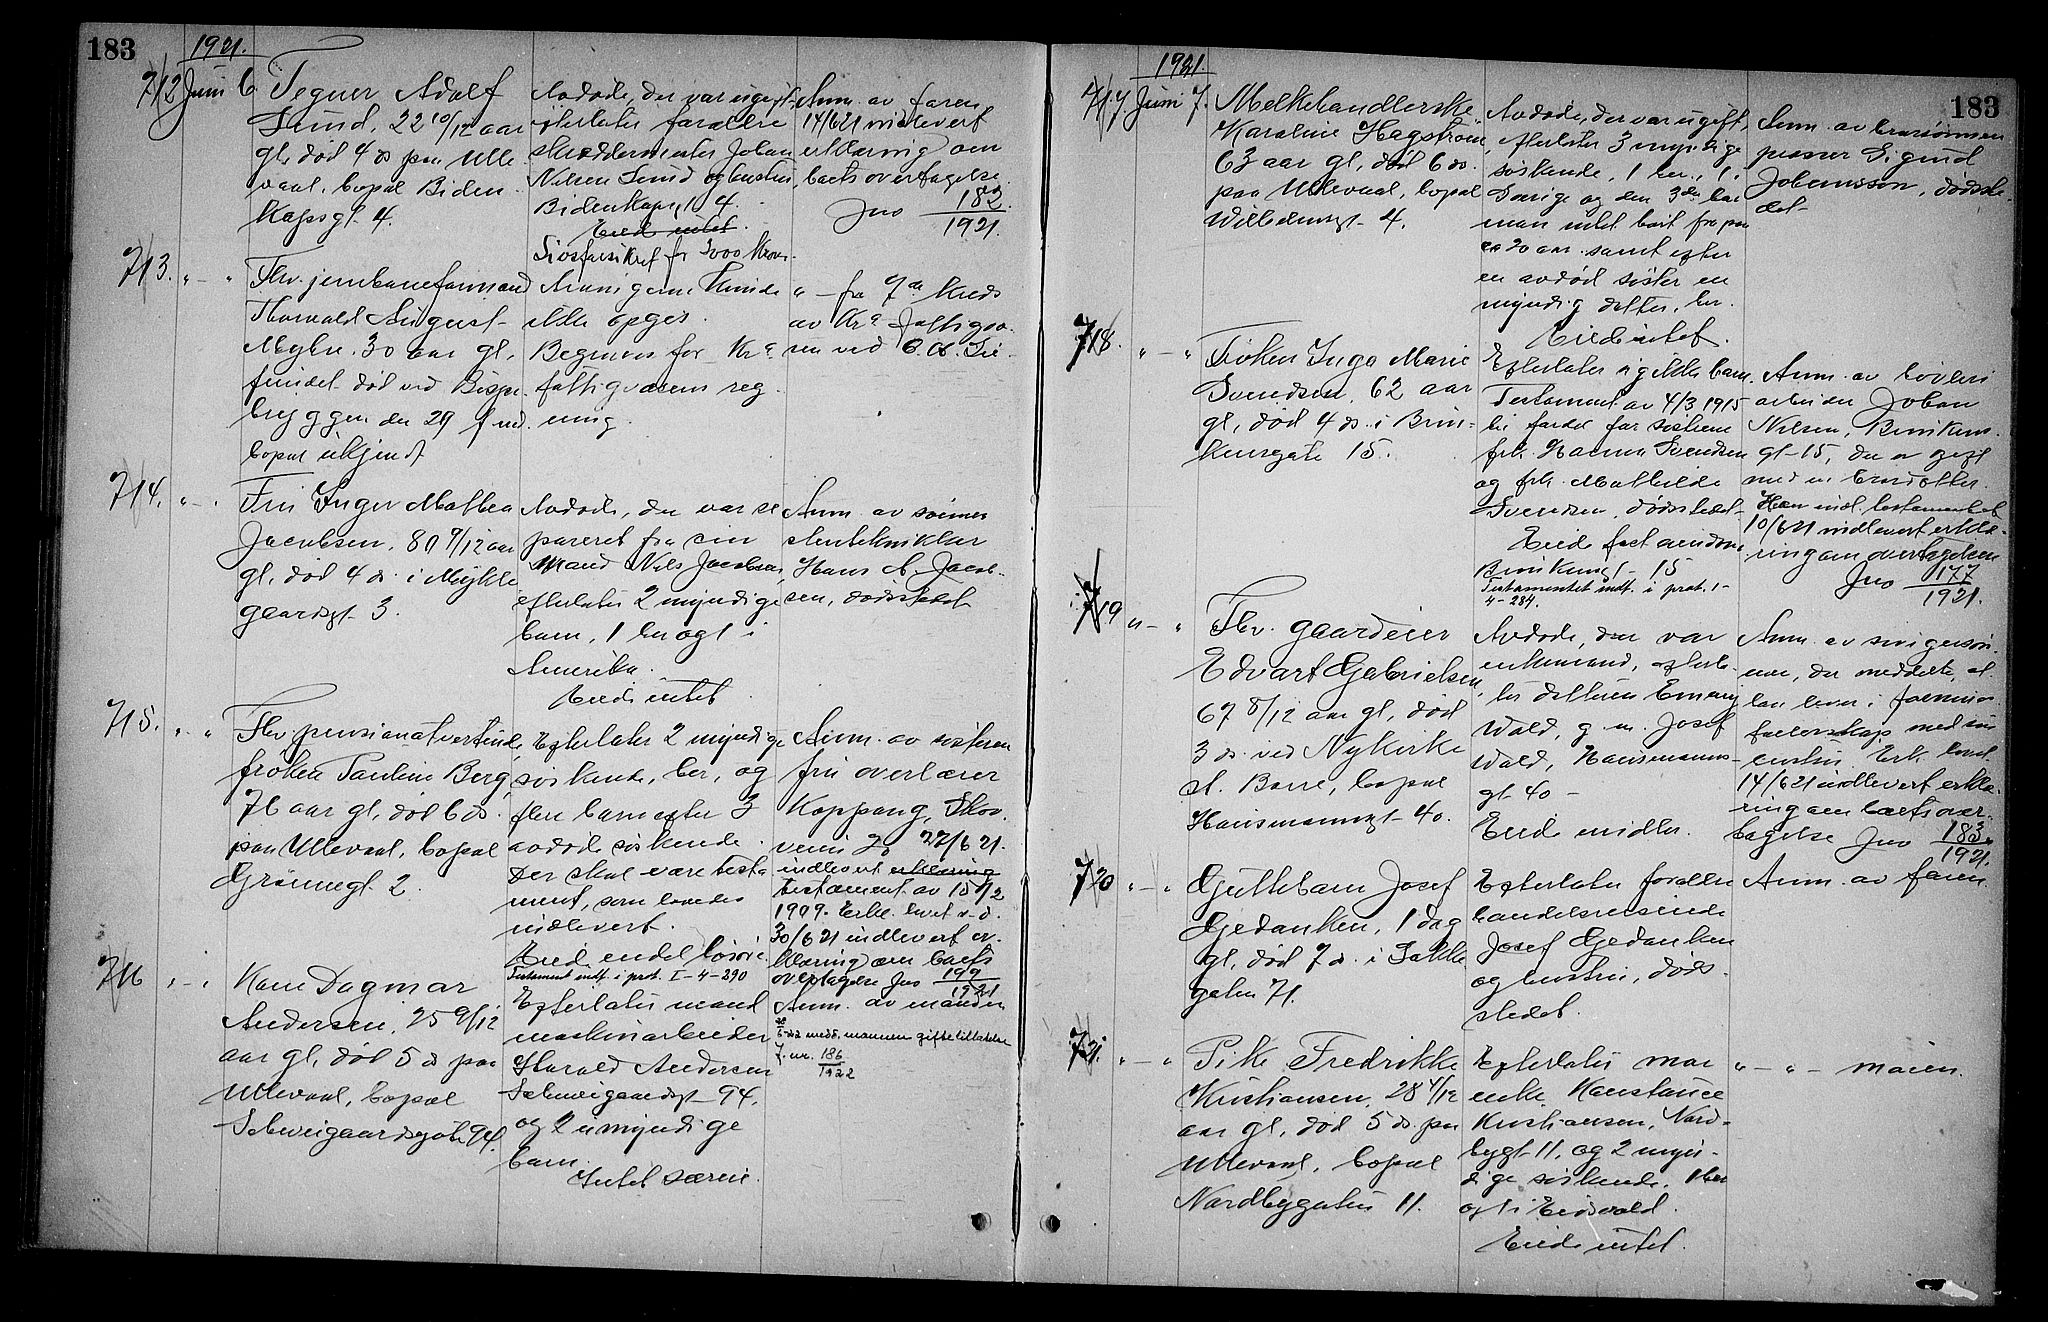 183
1921.
712 Juni 6
Tegner Adolf
Lund, 22 10/12 aar
gl, død 4 ds paa Ulle
vaal, bopæl Biden
kapsgt. 4.
Avdøde, der var ugift,
efterlater forældre
skræddermester Johan
Nilsen Lund og hustru,
Bidenkapsgt 4.
Eied intet.
Livsforsikret for 3000 Kroner.
Anm. av faren
14/6 21 indlevert
erklæring om
boets overtagelse
Jno 182
1921.
713. " - "
Fhv. jernbaneformand
Thorvald August
Myhre, 30 aar gl,
fundet død ved Bispe
bryggen den 29 f. md.
bopæl ukjendt
Arvingerne kunde
ikke opges.
Begraves for Kr.a
fattigvæsens reg
ning.
" - fra 7de Kreds
av Kr.a Fattigvæ
sen ved
714. " - "
Fru Inger Mathea
Jacobsen, 80 9/12 aar
gl, død 4 ds. i Mykle
gaardsgt. 3.
Avdøde, der var se
pareret fra sin
mand Nils Jacobsen,
efterlater 2 myndige
barn, 1 her og 1 i
Amerika.
Eiede intet
Anm. av sønnen
Hans A. Jacob-
sen, dødsstedet
715. " - "
Fhv. pensionatvertinde,
frøken Pauline Berg,
76 aar gl, død 6 ds.
paa Ullevaal, bopæl
Grønnegt. 2.
Efterlater 2 myndige
søskende, her, og
flere barn efter 3
avdøde søskende.
Der skal være testa
ment, som loves
indlevert.
Eied endel løsøre
Testament indf. i prot. I-4-290
Anm. av søsteren
fru overlærer
Koppang, Skov
veien 22/6 21.
indlevert erklæring
testament av 15/2
1909.
30/6 21 indlevert er
klæring om boets
overtagelse Jno 199
1921
716 " - "
Karen Dagmar
Andersen, 25 9/12
aar gl, død 5 ds paa
Ullevaal, bopæl
Schweigaardsgate 94.
Efterlater mand
maskinarbeider
Harald Andersen
Schweigaardsgt 94.
og 2 umyndige
barn.
Intet særeie.
Anm. av manden
medd. mannen giftetillatelse
J. nr. 186
1922
1921.
183
717 Juni 7.
Melkehandlerske
Karoline Hagstrøm
63 aar gl, død 6 ds.
paa Ullevaal, bopæl
Willesensgt. 4.
Avdøde, der var ugift,
efterlater 3 myndige
søskende, 1 her, 1 i
Sverige og den 3die har
man intet hørt fra paa
ca 20 aar. samt efter
en avdød søster en
myndig datter, her.
Eiede intet.
Anm. av brorsønnen
presser Sigurd
Johansson, dødsste
det
718. " - "
Frøken Inga Marie
Svendsen, 62 aar
gl, død 4 ds. i Brin-
kensgate 15.
Efterlater ikke barn.
Testament av 4/3 1915
til fordel for søstrene
frk. Hanna Svendsen
og frk. Mathilde
Svendsen, dødsstedet
Eiede fast eiendom
Brinkensgt - 15
Testamentet indf. i prot. I-
4-284.
Anm. av
arbeider Johan
Nilsen, Brinkens
gt. 15, der er gift
med en brordatter.
Han indl. testamentet
10/6 21 indlevert erklæ
ring om overtagelsen
Jno 177
1921.
719 " - "
Fhv. gaardeier
Edvart Gabrielsen,
67 8/12 aar gl, død
3 ds. ved Nykirke
st. Borre, bopæl
Hausmannsgt. 40.
Avdøde, der var
enkemand, efterla
ter datteren Emmy
Wald, g. m. Josef
Wald, Hausmanns-
gt 40 -
Eiede midler.
Anm. av svigersøn
nen, der meddelte, at
han lever i formues
fællesskap med sin
hustru.
14/6 21 indlevert erklæ
ring om boets over
tagelse Jno 183
1921.
720 " - "
Guttebarn Josef
Gjedanken, 1 dag
gl, død 7 ds. i Bakke
gaten 71.
Efterlater forældre
handelsreisende
Josef Gjedanken
og hustru, døds
stedet.
Anm. av faren
721. " - "
Pike Fredrikke
Kristiansen, 28 4/12
aar gl, død 5 ds. paa
Ullevaal, bopæl
Nordbygaten 11.
Efterlater mor
enke Konstance
Kristiansen, Nord-
bygt 11, og 2 myn-
dige søskende, 1 her
og 1 i Eidsvold.
Eiede intet.
" - " - moren.